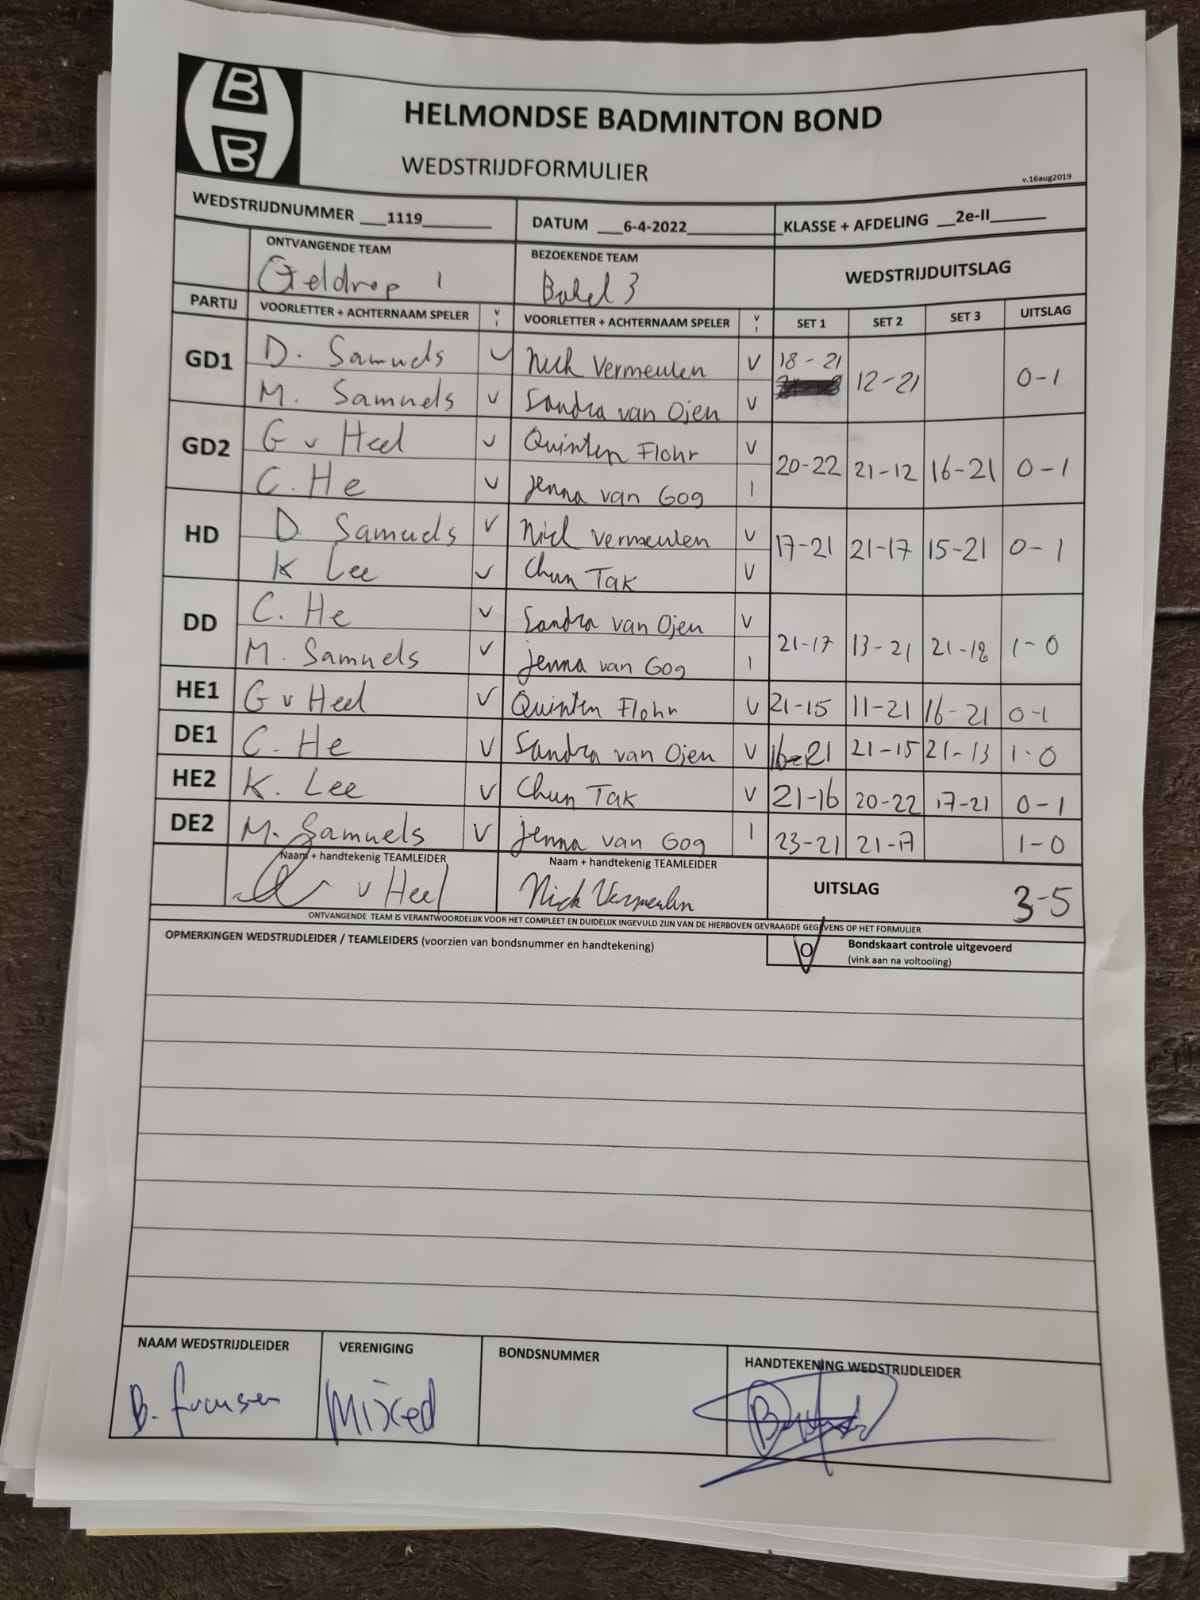 B
B
HELMONDSE BADMINTON BOND
WEDSTRIJDFORMULIER
v.16aug2019
WEDSTRIJDNUMMER ___1119________ DATUM ___6-4-2022________ KLASSE + AFDELING __2e-II______
ONTVANGENDE TEAM BEZOEKENDE TEAM WEDSTRIJDUITSLAG
Geldrop 1 Bakel 3
PARTIJ VOORLETTER + ACHTERNAAM SPELER V I VOORLETTER + ACHTERNAAM SPELER V I SET 1 SET 2 SET 3 UITSLAG
GD1 D. Samuels V Nick Vermeulen V 18-21 12-21 0-1
M. Samuels V Sandra van Ojen V
GD2 G v Heel V Quinten Flohr V 20-22 21-12 16-21 0-1
C. He V Jenna van Gog I
HD D Samuels V Nick Vermeulen V 17-21 21-17 15-21 0-1
K Lee V Chun Tak V
DD C. He V Sandra van Ojen V 21-17 13-21 21-18 1-0
M. Samuels V Jenna van Gog I
HE1 G v Heel V Quinten Flohr V 21-15 11-21 16-21 0-1
DE1 C. He V Sandra van Ojen V 16-21 21-15 21-13 1-0
HE2 K. Lee V Chun Tak V 21-16 20-22 17-21 0-1
DE2 M. Samuels V Jenna van Gog I 23-21 21-17 1-0
Naam + handtekenig TEAMLEIDER Naam + handtekening TEAMLEIDER UITSLAG 3-5
v Heel Nick Vermeulen
ONTVANGENDE TEAM IS VERANTWOORDELIJK VOOR HET COMPLEET EN DUIDELIJK INGEVULD ZIJN VAN DE HIERBOVEN GEVRAAGDE GEGEVENS OP HET FORMULIER
OPMERKINGEN WEDSTRIJDLEIDER / TEAMLEIDERS (voorzien van bondsnummer en handtekening) O V Bondskaart controle uitgevoerd
(vink aan na voltooiing)
NAAM WEDSTRIJDLEIDER VERENIGING BONDSNUMMER HANDTEKENING WEDSTRIJDLEIDER
B. Mixed